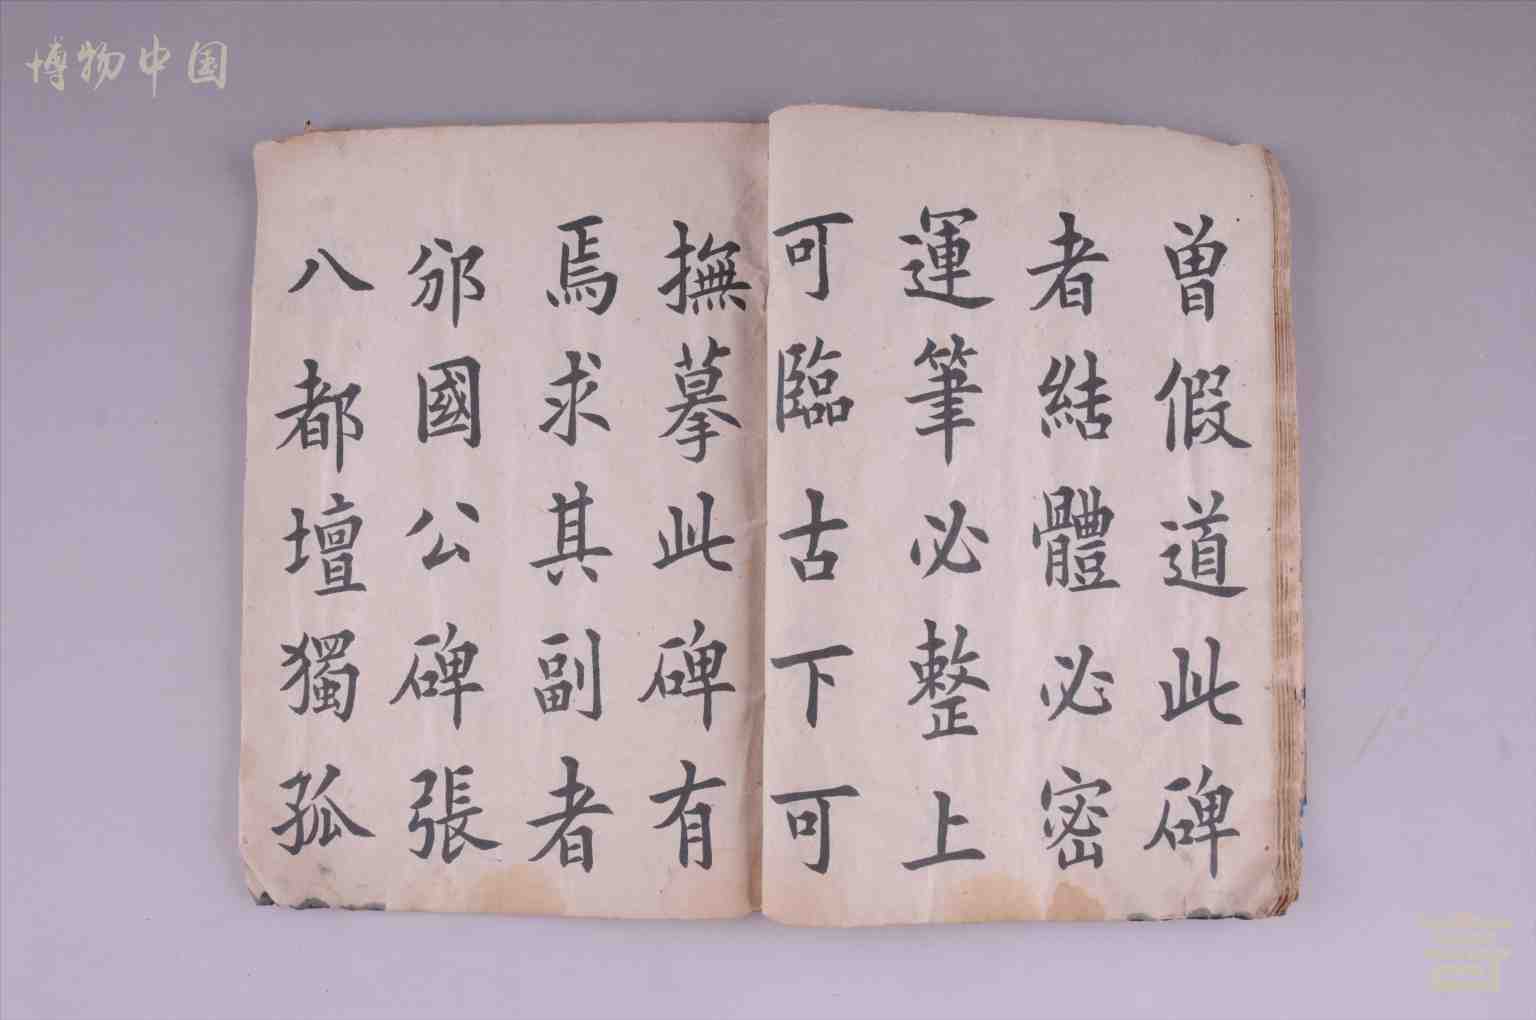 博物中国
曽假道此碑
者結體必密
運筆必整上
可臨古下可
撫摹此碑有
焉求其副者
邠國公碑張
八都壇獨孤